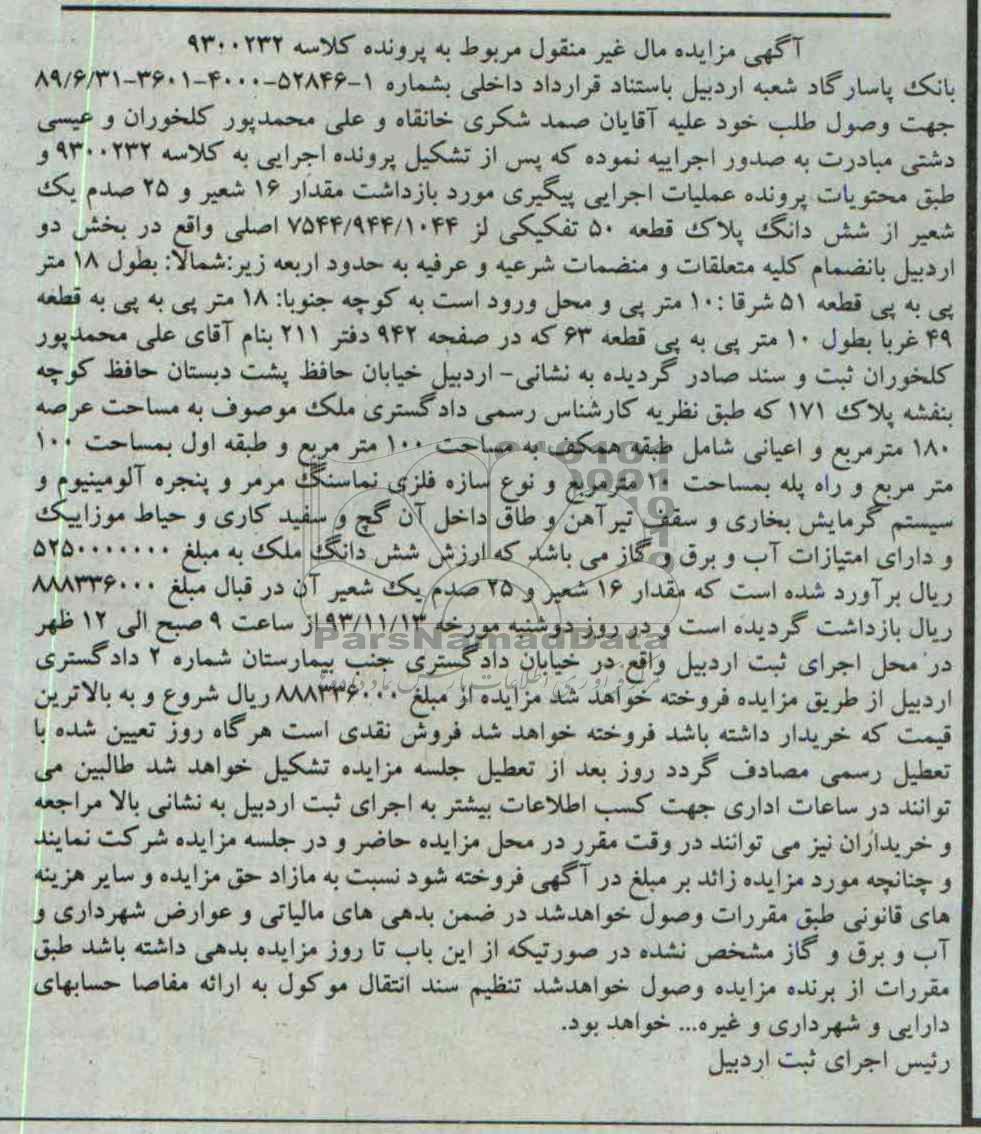 آگهی مزایده مال غیر منقول مربوط به پرونده کلاسه ۹۳۰۰۲۳۲
بانک پاسارگاد شعبه اردبیل باستناد قرارداد داخلی بشماره ۱-۵۲۸۴۶-۴۰۰۰-۳۶۰۱-۸۹/۶/۳۱
جهت وصول طلب خود علیه آقایان صمد شکری خانقاه و علی محمدپور کلخوران و عیسی
دشتی مبادرت به صدور اجراییه نموده که پس از تشکیل پرونده اجرایی به کلاسه ۹۳۰۰۲۳۲ و
طبق محتویات پرونده عملیات اجرایی پیگیری مورد بازداشت مقدار ۱۶ شعیر و ۲۵ صدم یک
شعیر از شش دانگ پلاک قطعه ۵۰ تفکیکی لز ۷۵۴۴/۹۴۴/۱۰۴۴ اصلی واقع در بخش دو
اردبیل بانضمام کلیه متعلقات و منضمات شرعیه و عرفیه به حدود اربعه زیر:شمالا: بطول ۱۸ متر
پی به پی قطعه ۵۱ شرقا :۱۰ متر پی و محل ورود است به کوچه جنوبا: ۱۸ متر پی به پی به قطعه
۴۹ غربا بطول ۱۰ متر پی به پی قطعه ۶۳ که در صفحه ۹۴۲ دفتر ۲۱۱ بنام آقای علی محمدپور
کلخوران ثبت و سند صادر گردیده به نشانی- اردبیل خیابان حافظ پشت دبستان حافظ کوچه
بنفشه پلاک ۱۷۱ که طبق نظریه کارشناس رسمی دادگستری ملک موصوف به مساحت عرصه
۱۸۰ مترمربع و اعیانی شامل طبقه همکف به مساحت ۱۰۰ متر مربع و طبقه اول بمساحت ۱۰۰
متر مربع و راه پله بمساحت ۱۰ مترمربع و نوع سازه فلزی نماسنگ مرمر و پنجره آلومینیوم و
سیستم گرمایش بخاری و سقف تیرآهن و طاق داخل آن گچ و سفید کاری و حیاط موزاییک
و دارای امتیازات آب و برق و گاز می باشد که ارزش شش دانگ ملک به مبلغ ۵۲۵۰۰۰۰۰۰۰
ریال برآورد شده است که مقدار ۱۶ شعیر و ۲۵ صدم یک شعیر آن در قبال مبلغ ۸۸۸۳۳۶۰۰۰
ریال بازداشت گردیده است و در روز دوشنبه مورخه ۹۳/۱۱/۱۳ از ساعت ۹ صبح الی ۱۲ ظهر
در محل اجرای ثبت اردبیل واقع در خیابان دادگستری جنب بیمارستان شماره ۲ دادگستری
اردبیل از طریق مزایده فروخته خواهد شد مزایده از مبلغ ۸۸۸۳۳۶۰۰۰ ریال شروع و به بالاترین
قیمت که خریدار داشته باشد فروخته خواهد شد فروش نقدی است هرگاه روز تعیین شده با
تعطیل رسمی مصادف گردد روز بعد از تعطیل جلسه مزایده تشکیل خواهد شد طالبین می
توانند در ساعات اداری جهت کسب اطلاعات بیشتر به اجرای ثبت اردبیل به نشانی بالا مراجعه
و خریداران نیز می توانند در وقت مقرر در محل مزایده حاضر و در جلسه مزایده شرکت نمایند
و چنانچه مورد مزایده زائد بر مبلغ در آگهی فروخته شود نسبت به مازاد حق مزایده و سایر هزینه
های قانونی طبق مقررات وصول خواهدشد در ضمن بدهی های مالیاتی و عوارض شهرداری و
آب و برق و گاز مشخص نشده در صورتیکه از این باب تا روز مزایده بدهی داشته باشد طبق
مقررات از برنده مزایده وصول خواهدشد تنظیم سند انتقال موکول به ارائه مفاصا حسابهای
دارایی و شهرداری و غیره... خواهد بود.
رئیس اجرای ثبت اردبیل
ParsNamadData